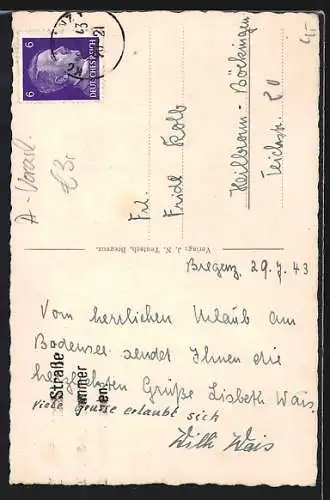 6
6
DEUTSCHES REICH
43
21
A - Vorarl.
Frl.
Fridl Kolb
Heilbronn - Böckingen
Teichstr. 20
Verlag: J. N. Teutsch, Bregenz.
Bregenz, 29.7.43
Vom herrlichen Urlaub am
Bodensee sendet Ihnen die
herzlichsten Grüße Lisbeth Wais.
Viele grüsse erlaubt sich
Willi Wais
Straße